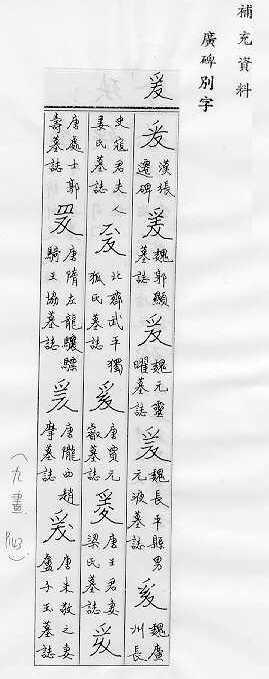 補充資料
廣碑別字
爰
爰 漢張遷碑 爰 魏郭顯墓誌 爰 魏元靈曜墓誌 爰 魏長平縣男元液墓誌 爰 魏廬州長
史寇君夫人姜氏墓誌 爰 北齊武平獨狐氏墓誌 爰 唐賈元叡墓誌 爰 唐王君妻梁氏墓誌 爰
唐處士郭壽墓誌 爰 唐隋左龍驤驃騎王協墓誌 爰 唐隴西趙摩墓誌 爰 唐朱敬之妻盧子玉墓誌
(九畫 P143)